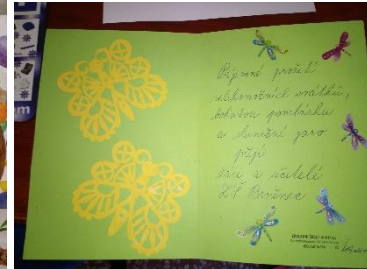 Příjemné prožití
velikonočních svátků,
bohatou pomlázku
a slunečné jaro
přejí
žáci a učitelé
ZŠ Brněnec